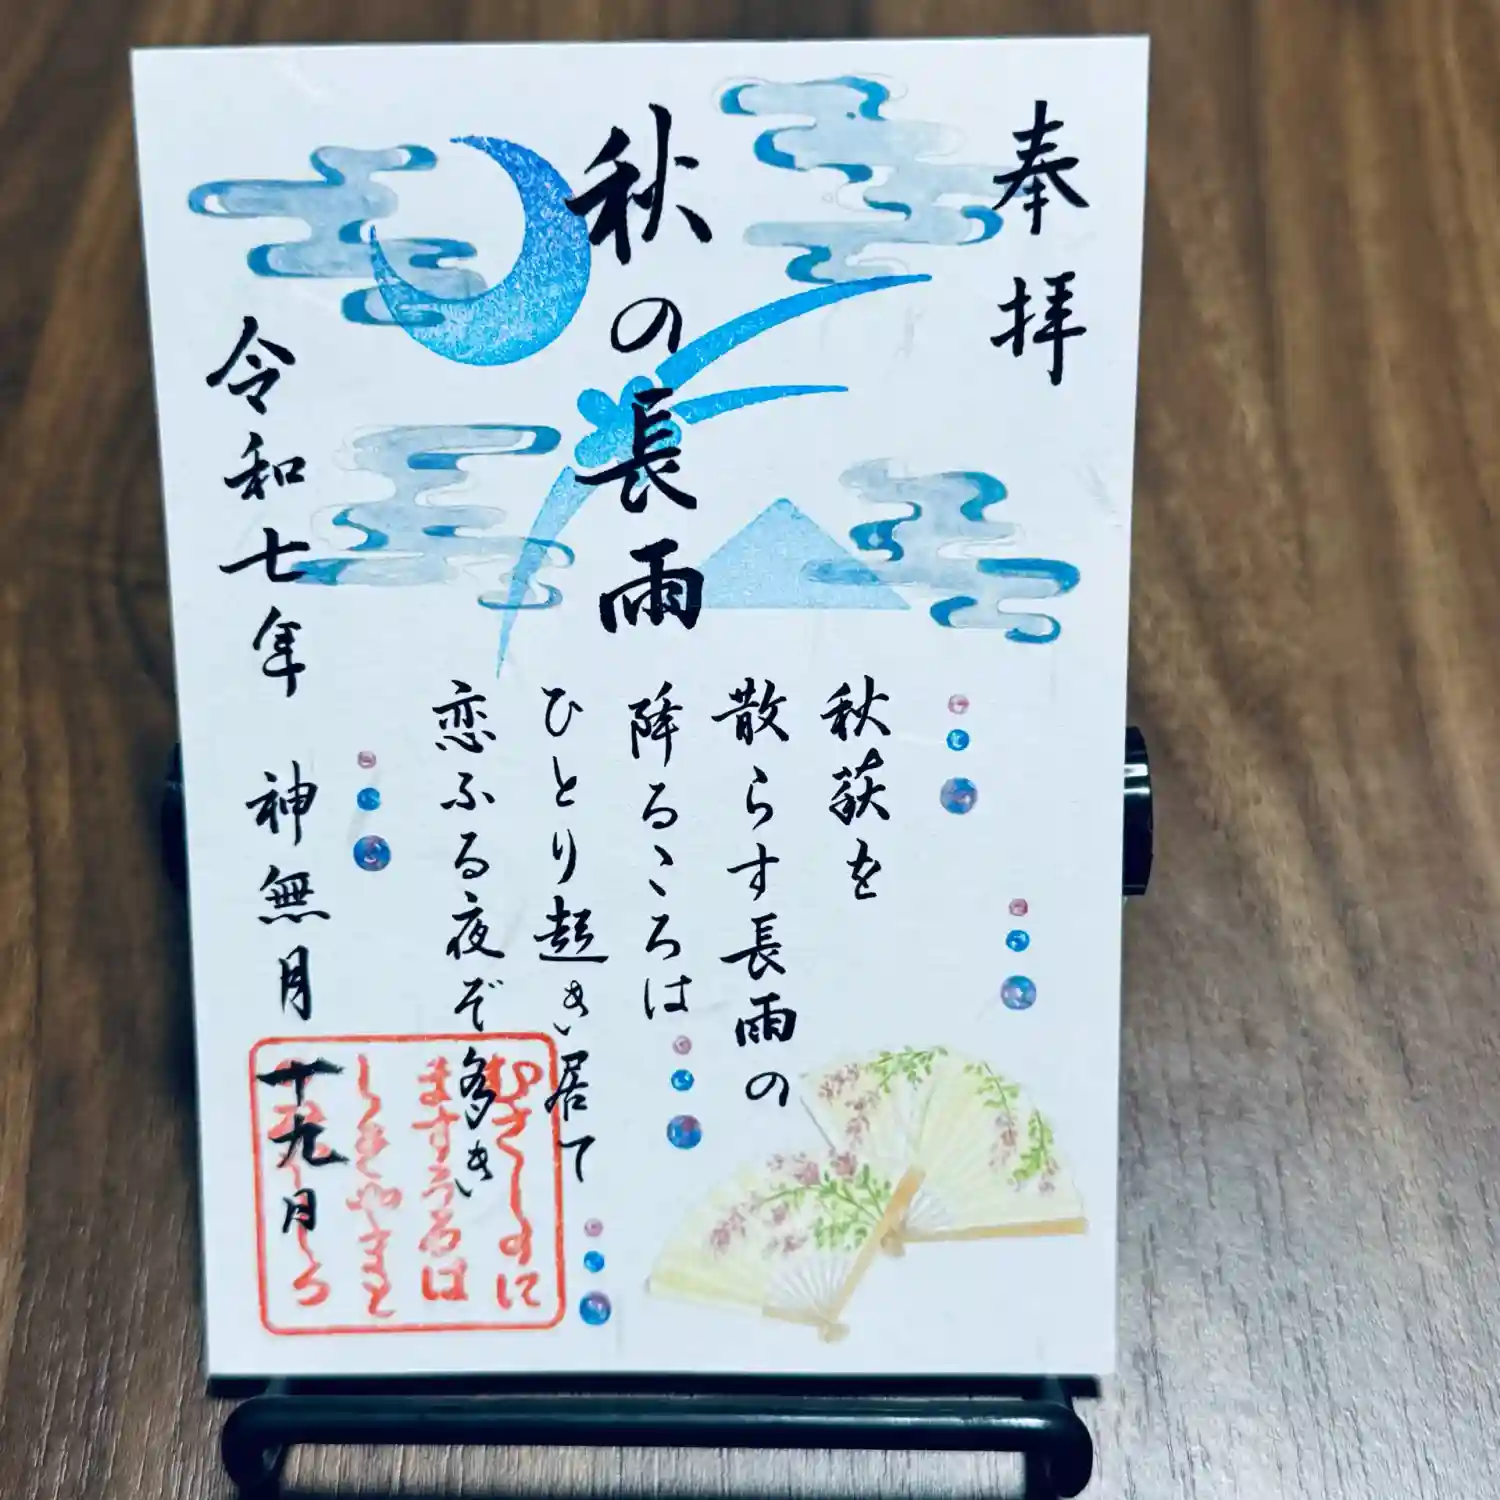 奉拝
秋の長雨
秋萩を
散らす長雨の
降るころは
ひとり起き居て
恋ふる夜ぞ多き
令和七年 神無月 十九日
むさしのに
ますうるは
しきやまと